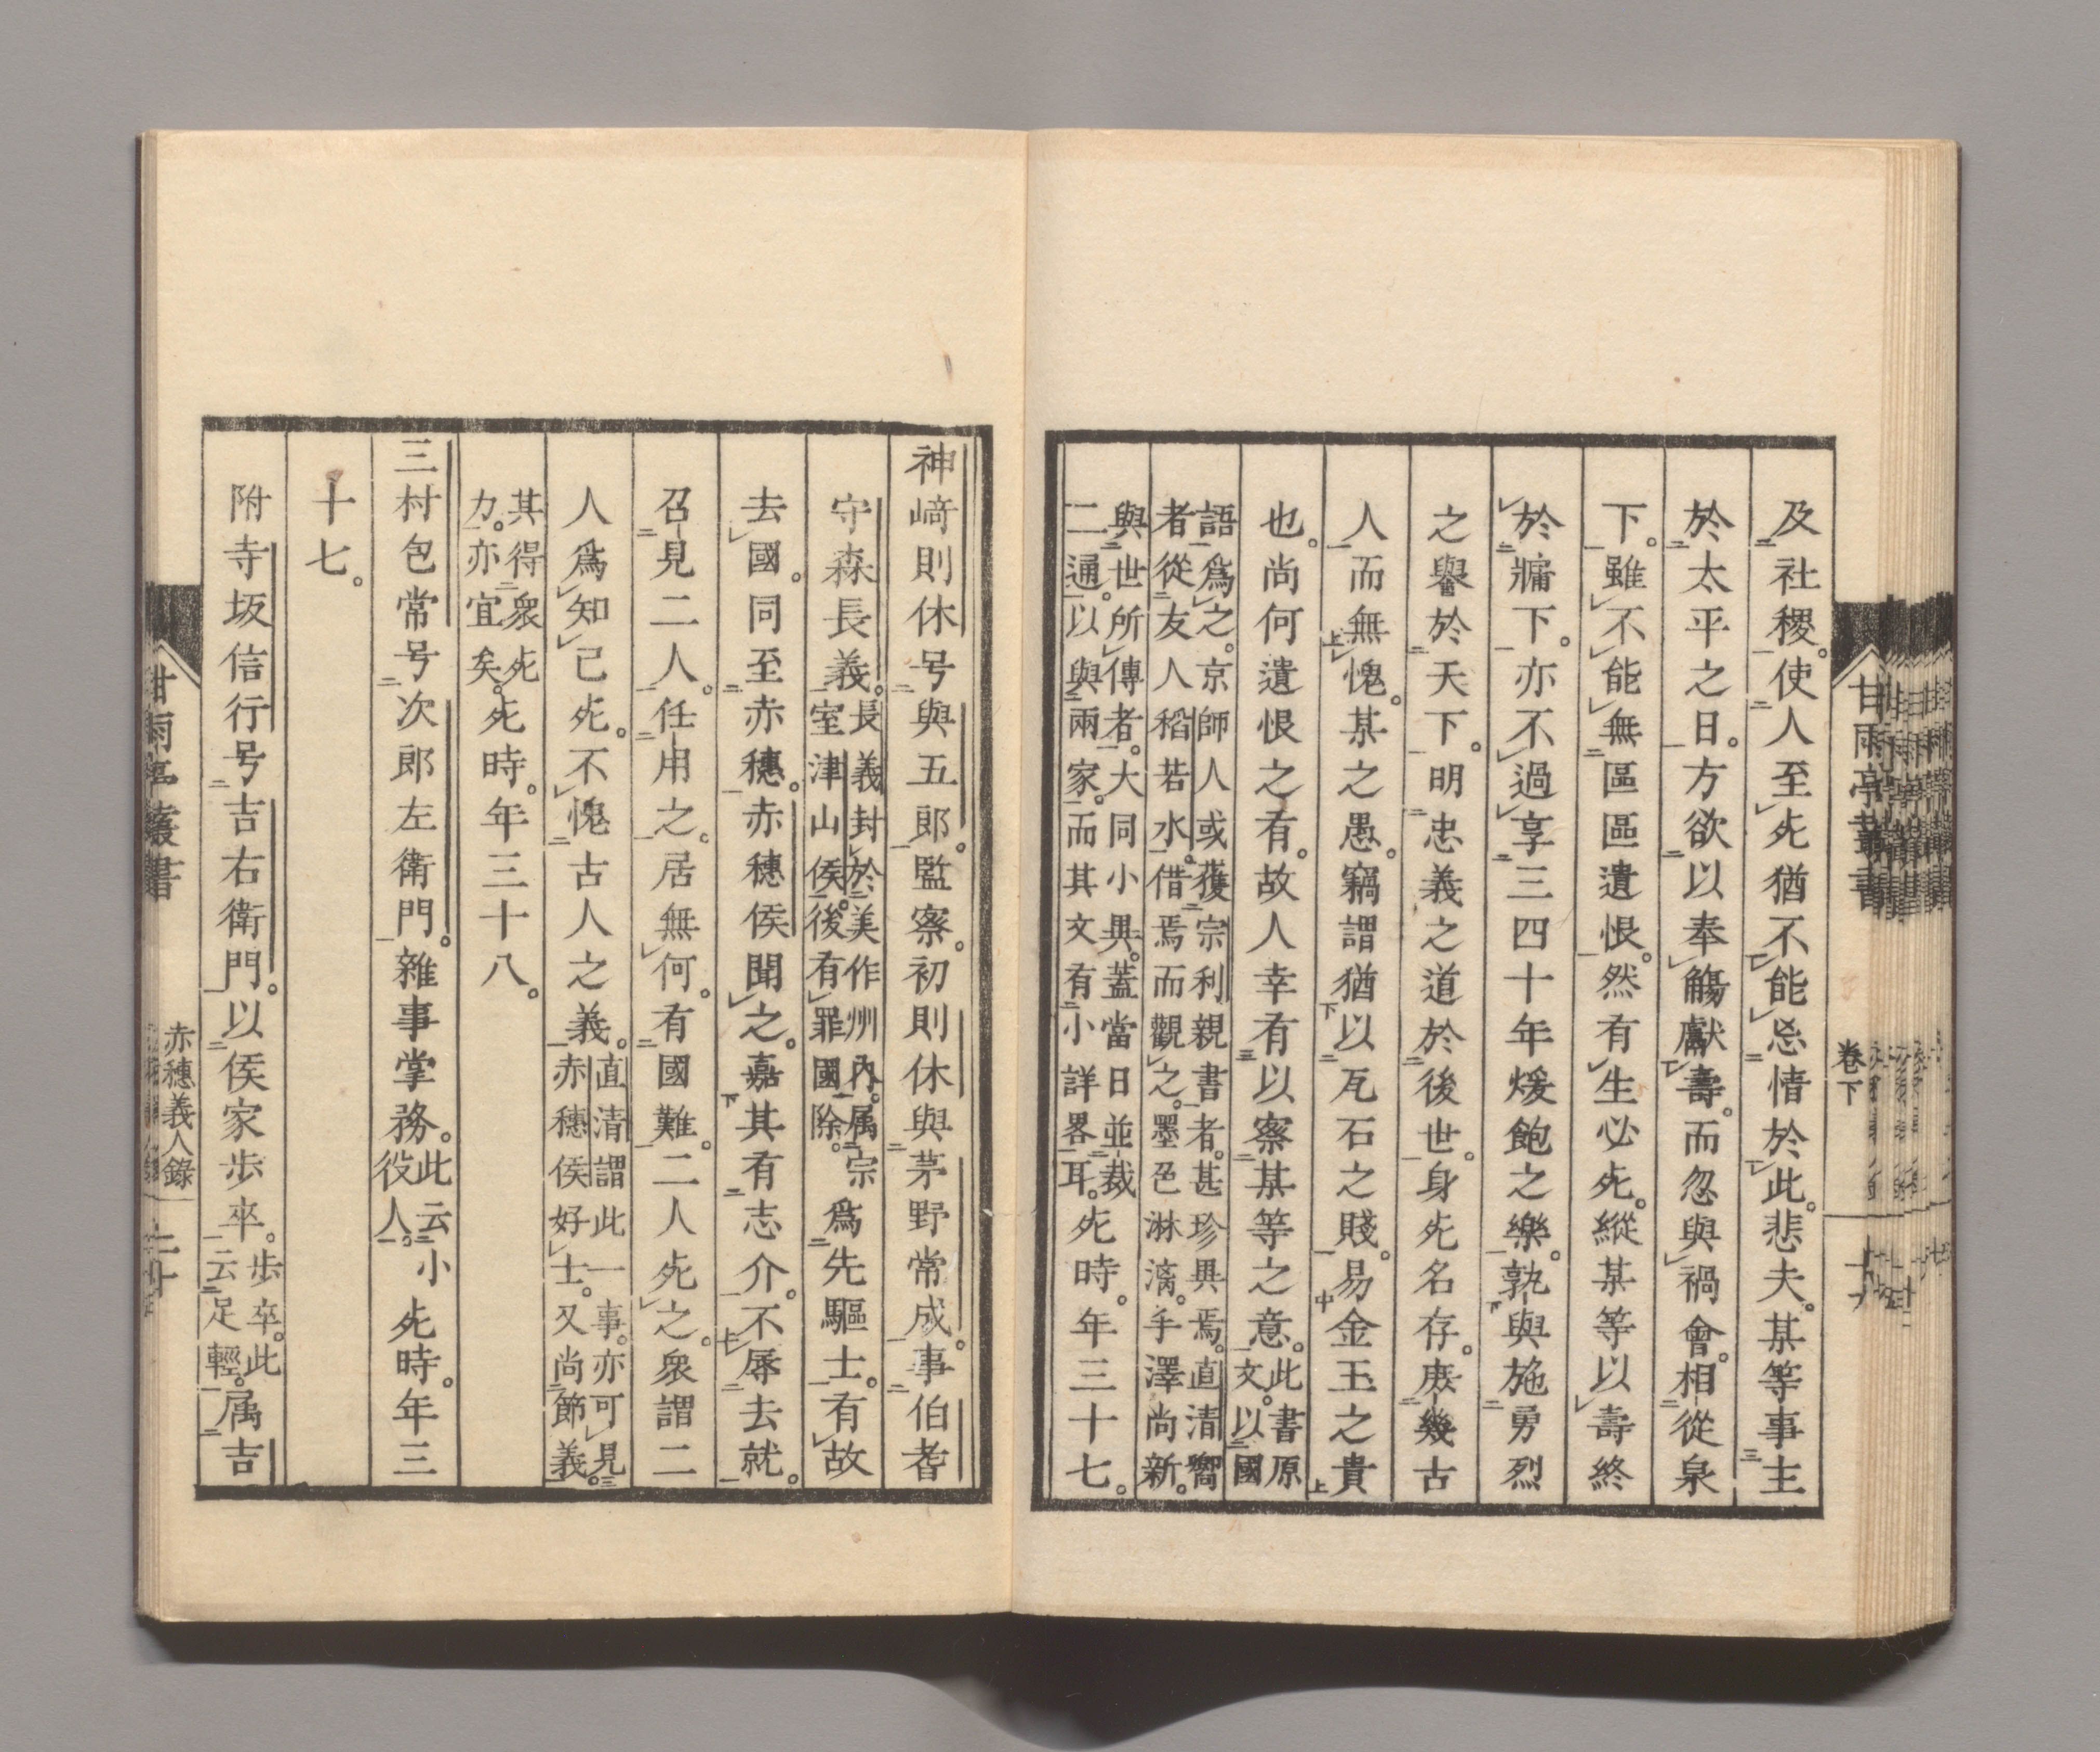 及社稷。使人至死猶不能忘情於此。悲夫。某等事主
於太平之日。方欲以奉觴獻壽。而忽與禍會。相從泉
下。雖不能無區區遺恨。然有生必死。縱某等以壽終
於牖下。亦不過享三四十年煖飽之樂。孰與施勇烈
之譽於天下。明忠義之道於後世。身死名存。庶幾古
人而無愧。某之愚。竊謂猶以瓦石之賤。易金玉之貴
也。尚何遺恨之有。故人幸有以察某等之意。此書原
文。以國
語爲之。京師人或獲宗利親書者。甚珍異焉。直清嚮
者從友人稻若水。借焉而觀之。墨色淋漓。手澤尚新。
與世所傳者。大同小異。蓋當日並裁
二通。以與兩家。而其文有小詳畧耳。死時。年三十七。
甘雨亭叢書
卷下
神﨑則休号與五郎。監察。初則休與茅野常成。事伯耆
守森長義。長義封於美作州内。属宗
室津山侯。後有罪國除。爲先驅士。有故
去國。同至赤穗。赤穗侯聞之。嘉其有志介。不辱去就。
召見二人。任用之。居無何。有國難。二人死之。衆謂二
人爲知己死。不愧古人之義。直清謂此一事。亦可見
赤穗侯好士。又尚節義。
其得衆死
力。亦宜矣。死時。年三十八。
三村包常号次郎左衛門。雜事掌務。此云小
役人。死時。年三
十七。
附寺坂信行号吉右衛門。以侯家歩卒。歩卒。此
云足輕。属吉
甘雨亭叢書
赤穗義人錄
二十